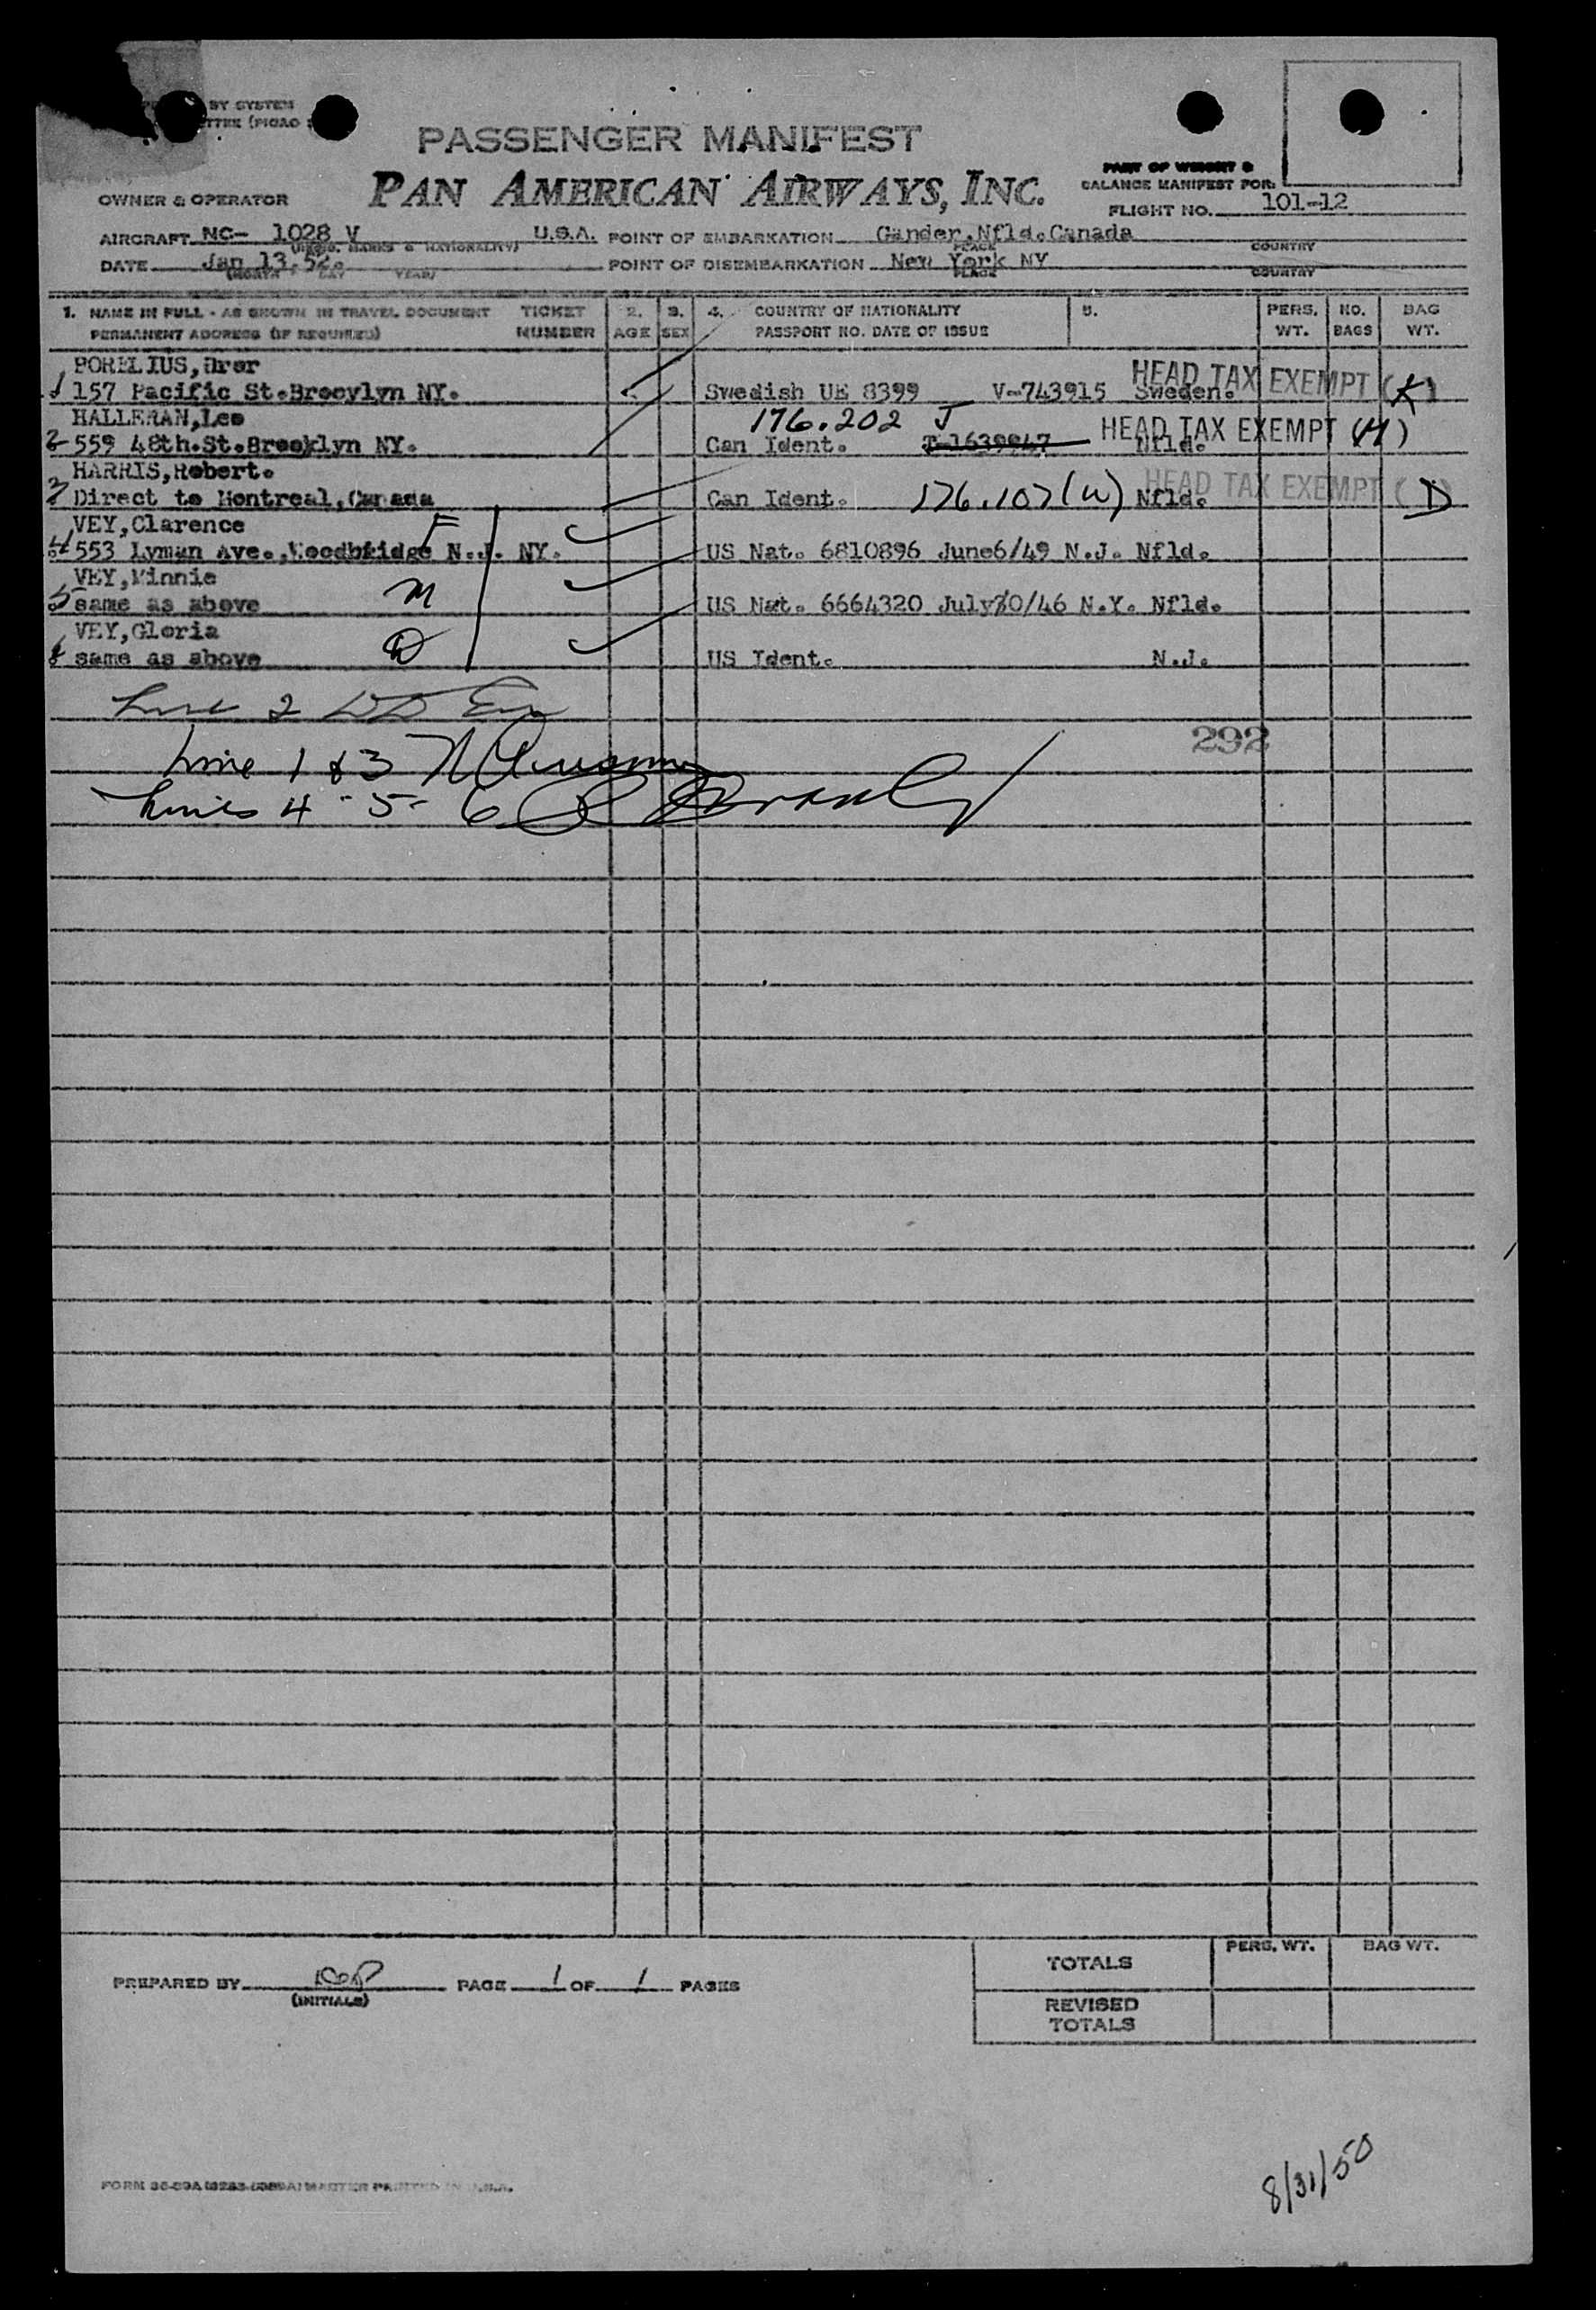 BY SYSTEM
PASSENGER MANIFEST
PAN AMERICAN AIRWAYS, INC.
PART OF WEIGHT &
BALANCE MANIFEST FOR:
OWNER & OPERATOR
FLIGHT NO. 101-12
AIRCRAFT NC- 1028 V U.S.A. POINT OF EMBARKATION Gander,Nfld.Canada
(REGIS. MARKS & NATIONALITY) PLACE COUNTRY
DATE Jan 13,52. POINT OF DISEMBARKATION New York NY
(MONTH DAY YEAR) PLACE COUNTRY
1. NAME IN FULL - AS SHOWN IN TRAVEL DOCUMENT TICKET 2. 3. 4. COUNTRY OF NATIONALITY 5. PERS. NO. BAG
PERMANENT ADDRESS (IF REQUIRED) NUMBER AGE SEX PASSPORT NO. DATE OF ISSUE WT. BAGS WT.
HEAD TAX EXEMPT (K)
1 157 Pacific St.Broovlyn NY. Swedish UE 8399 V-743915 Sweden.
HALLERAN,Leo 176.202 J HEAD TAX EXEMPT (H)
2 559 48th.St.Brooklyn NY. Can Ident. Nfld.
HARRIS,Robert. HEAD TAX EXEMPT ( )
3 Direct to Montreal,Canada Can Ident. 176.107(W) Nfld. D
VEY,Clarence F
4 553 Lyman Ave.,Woodbridge N.J. NY. US Nat. 6810896 June6/49 N.J. Nfld.
VEY,Minnie M
5 same as above US Nat. 6664320 July30/46 N.Y. Nfld.
VEY,Gloria D
same as above US Ident. N.J.
Line 2
292
Line 1 & 3
Lines 4 - 5 - 6
TOTALS PERS. WT. BAG WT.
PREPARED BY PAGE 1 OF 1 PAGES
(INITIALS)
REVISED
TOTALS
8/31/50